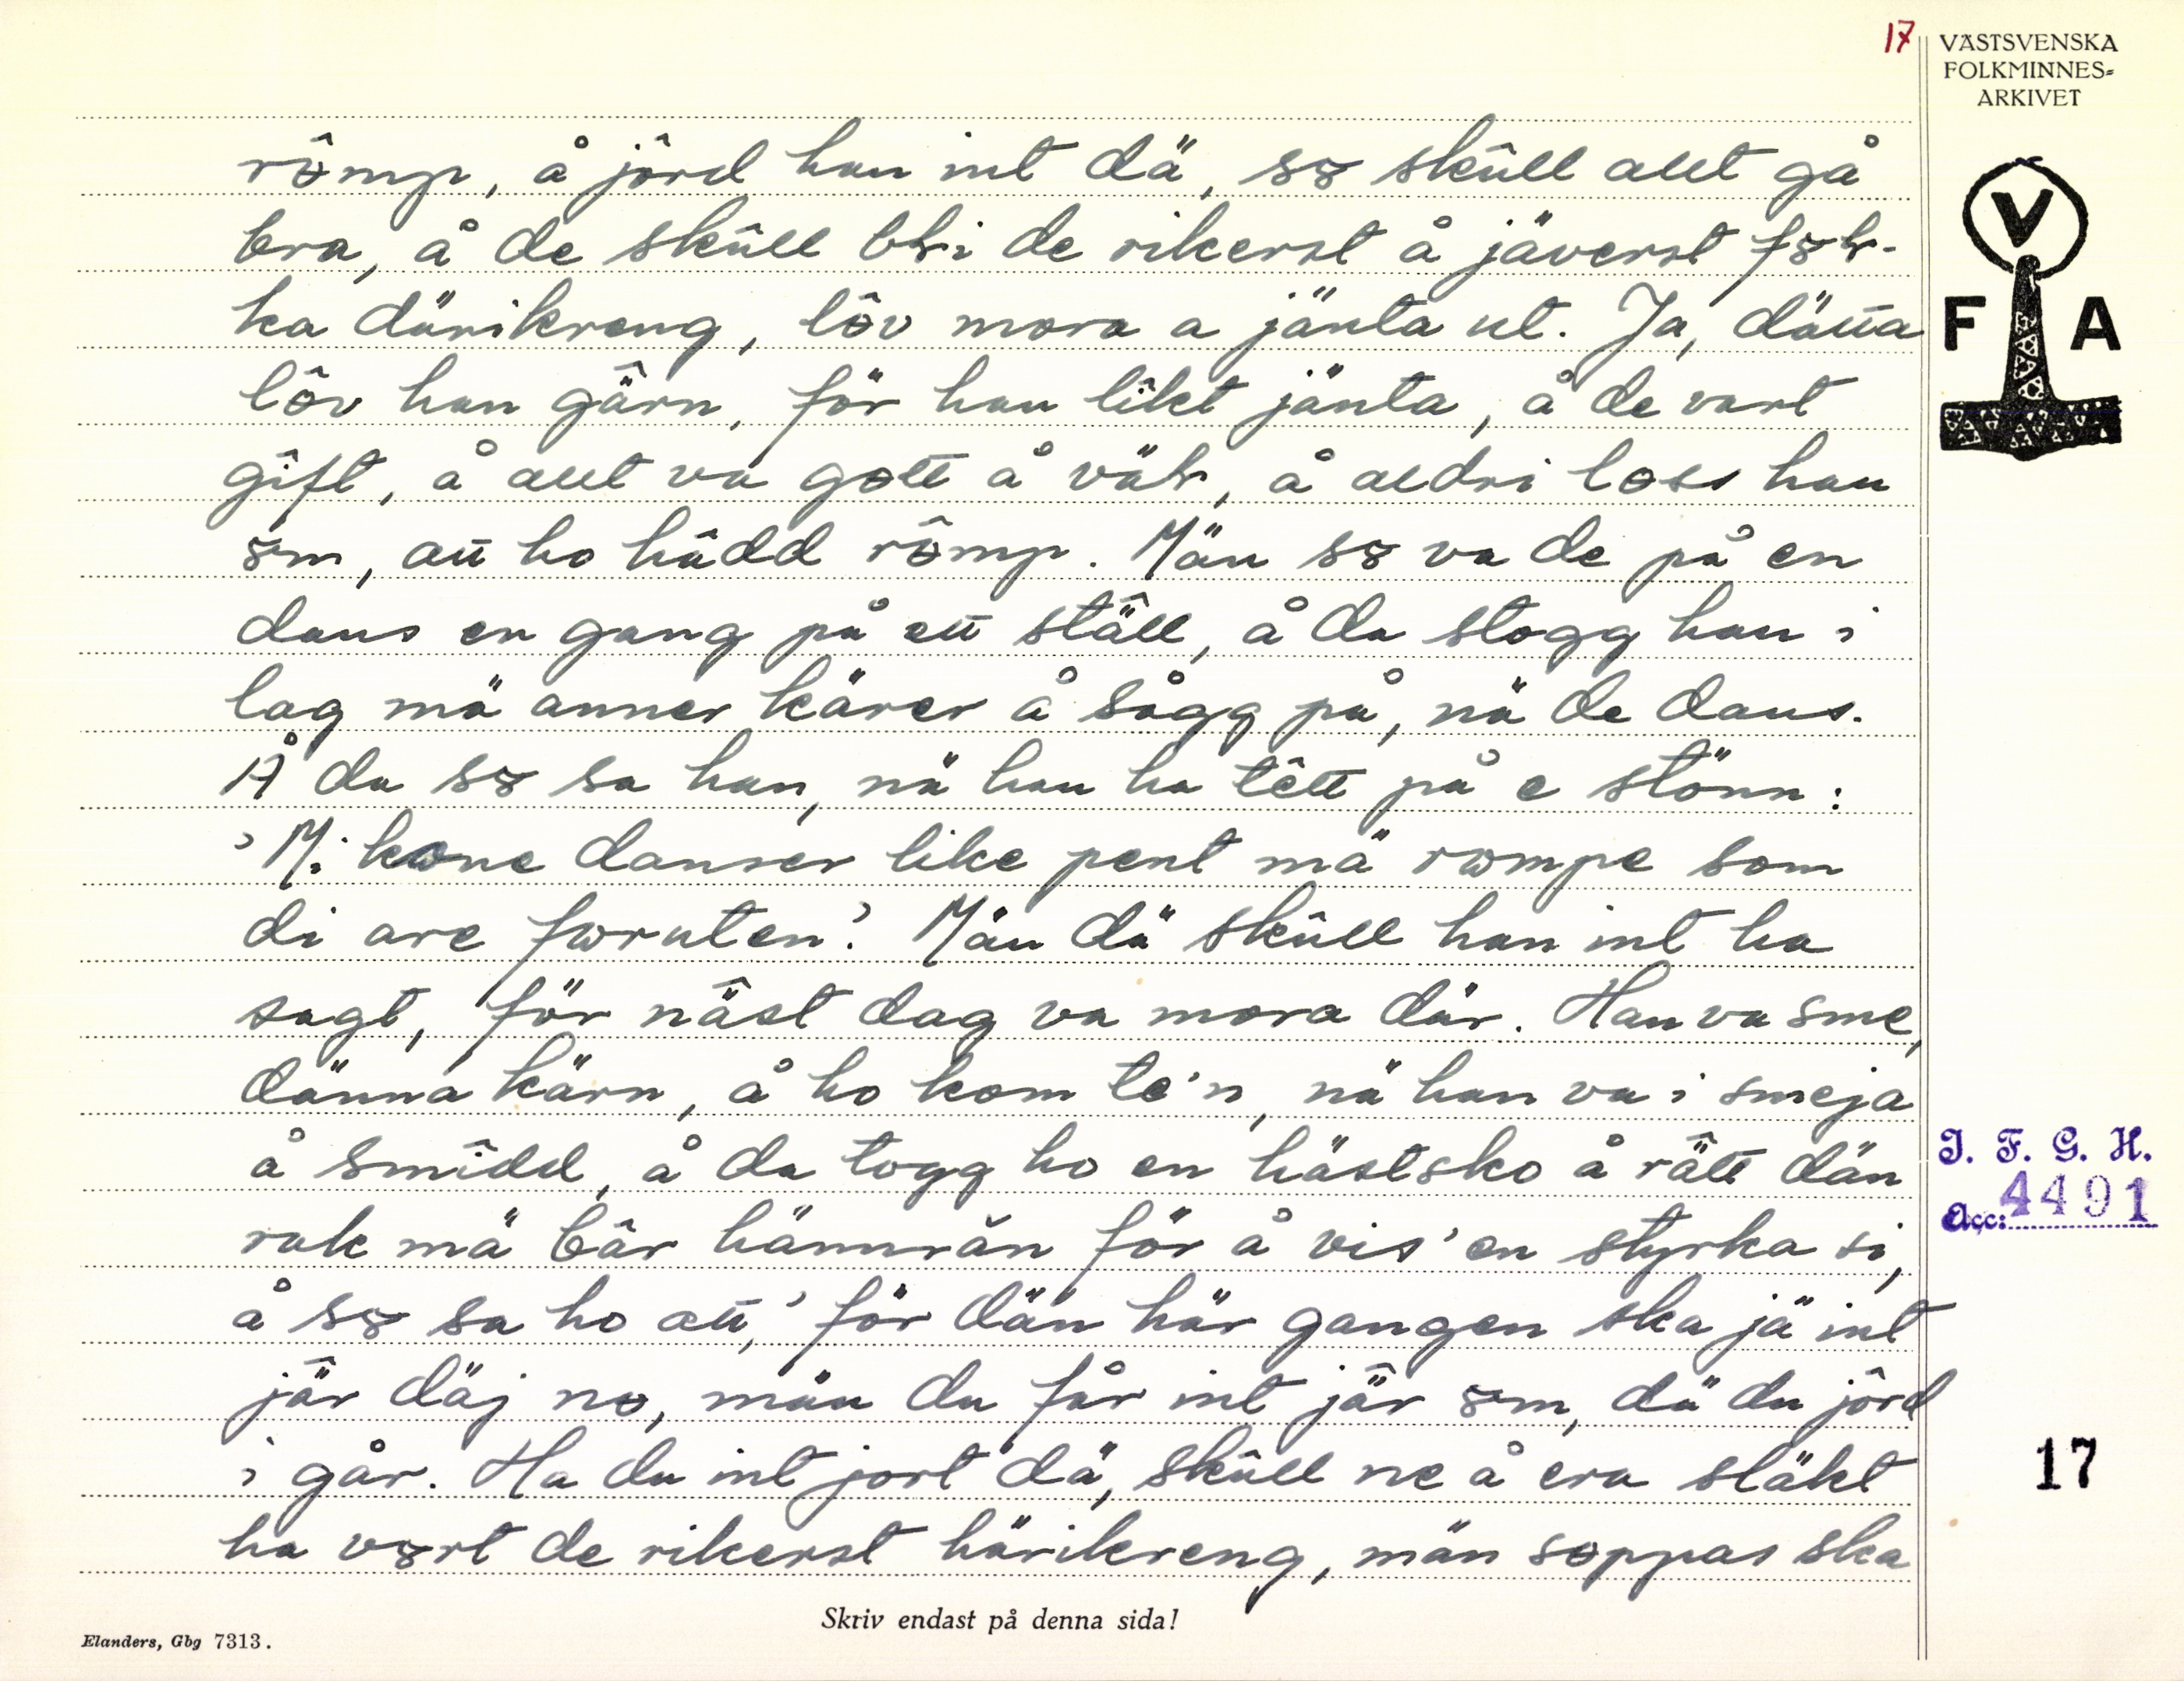 17
VÄSTSVENSKA
FOLKMINNES-
ARKIVET
V
F A
rômp, å jôrd han int dä, sɤ skûll allt gå
bra, å de skûll bli de rikerst å jäverst fɤl-
ka därikreng, lôv mora a jänta ut. Ja, dätta
lôv han gä̂rn, för han lîkt jänta, å de vart
gîft, å allt va gott å väl, å aldri loss han
ɤm, att ho hâdd rômp. Män sɤ va de på en
dans en gang på ett stä̂ll, å da stogg han i
lag mä anner kärer å sågg på, nä de dans.
Å da sɤ sa han, nä han ha têtt på e stönn:
'Mi kone danser like pent mä rompe som
di are foruten'. Män dä skûll han int ha
sagt, för nä̂st dag va mora där. Han va sme,
dänna kärn, å ho kom te'n, nä han va i smeja
å smîdd, å da togg ho en hästsko å rä̂tt dän
rak mä bâr hännrăn för å vis'en styrka si,
å sɤ sa ho att, 'för dän här gangen ska jä int
jä̂r däj no, män du får int jä̂r ɤm, dä du jôrd
i går. Ha du int jort dä, skûll ne å era släkt
ha vɤrt de rikerst härikreng, män soppas ska
I. F. G. H.
Acc: 4491
17
Skriv endast på denna sida!
Elanders, Gbg 7313.